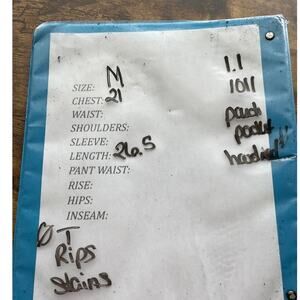 SIZE: M
CHEST: 21
WAIST:
SHOULDERS:
SLEEVE:
LENGTH: 26.5
PANT WAIST:
RISE:
HIPS:
INSEAM:
1.1
1011
pouch
pocket
Ø T
Rips
Stains